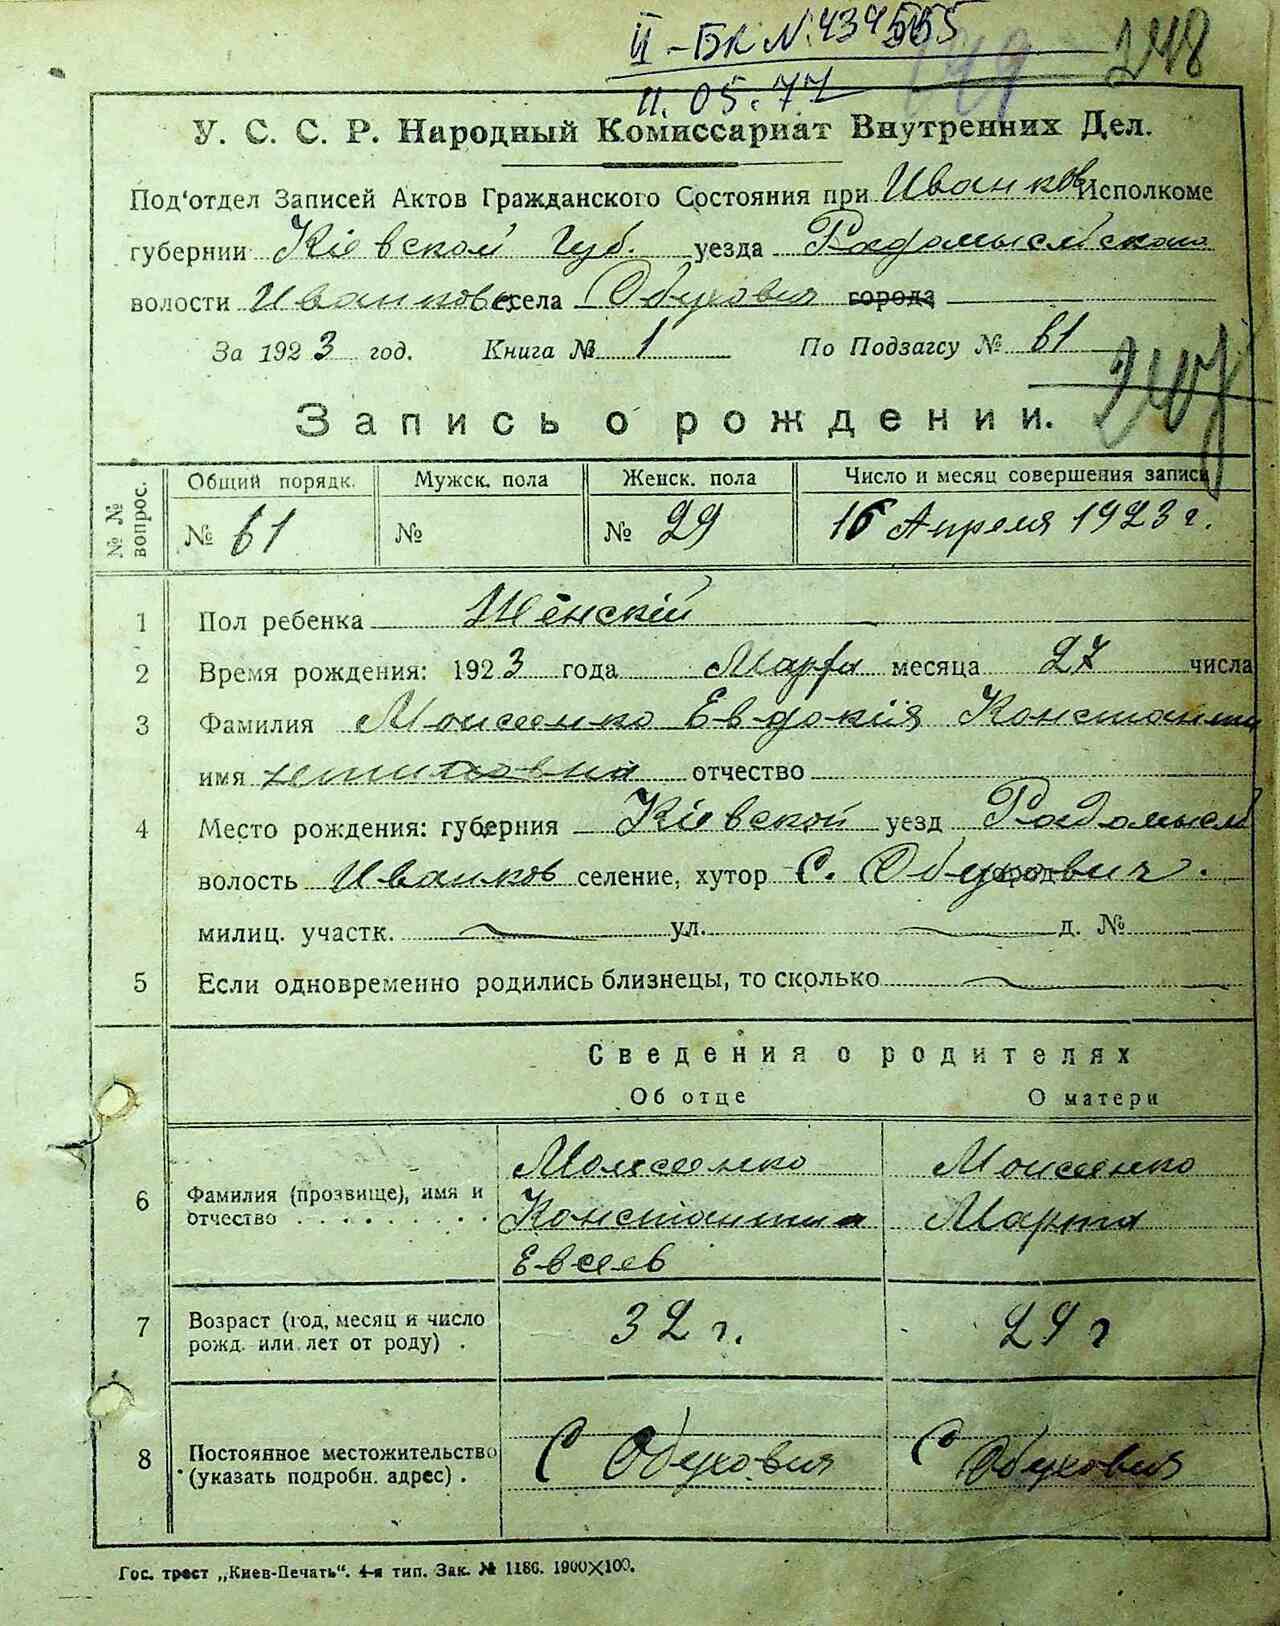 II-БК N. 434555
11.05.77
149 248
У. С. С. Р. Народный Комиссариат Внутренних Дел.
Под'отдел Записей Актов Гражданского Состояния при Иванков Исполкоме
губернии Кіевской губ. уезда Радомысльского
волости Иванков села Обуховичи города
За 1923 год. Книга № 1 По Подзагсу № 61
247
Запись о рождении.
№ № вопрос. Общий порядк. Мужск. пола Женск. пола Число и месяц совершения записи
№ 61 № № 29 16 Апреля 1923 г.
1 Пол ребенка Женскій
2 Время рождения: 1923 года Марта месяца 27 числа
3 Фамилия Моисеенко Евдокія Константи
имя отчество
4 Место рождения: губерния Кіевской уезд Радомысл
волость Иванков селение, хутор С. Обуховичи.
милиц. участк. ул. д. №
5 Если одновременно родились близнецы, то сколько
Сведения о родителях
Об отце О матери
6 Фамилия (прозвище), имя и отчество . . . . . . . . .
Моисеенко Моисеенко
Константин Марта
Евсеев
7 Возраст (год, месяц и число рожд. или лет от роду) .
32 г. 29 г
8 Постоянное местожительство (указать подробн. адрес) .
С Обуховичи С Обуховичи
Гос. трест „Киев-Печать“. 4-я тип. Зак. № 1186. 1900×100.